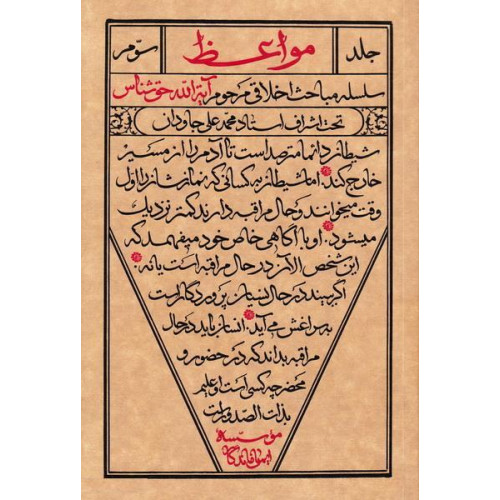 جلد مواعظ سوّم
سلسله مباحث اخلاقی مرحوم آیة الله حق شناس
تحت اشراف استاد محمد علی جاودان
شیطان دائما مترصد است تا آدم را از مسیر
خارج کند. امّا شیطان به کسانی که نمازشان را اول
وقت میخوانند و حال مراقبه دارند کمتر نزدیک
میشود. او با آگاهی خاص خود میفهمد که
این شخص الآن در حال مراقبه است یا نه.
اگر ببیند در حال نسیان پروردگار است
به سراغش می آید. انسان باید در حال
مراقبه بداند که در حضور و
محضر چه کسی است او علیم
بذات الصدور است
موسسه